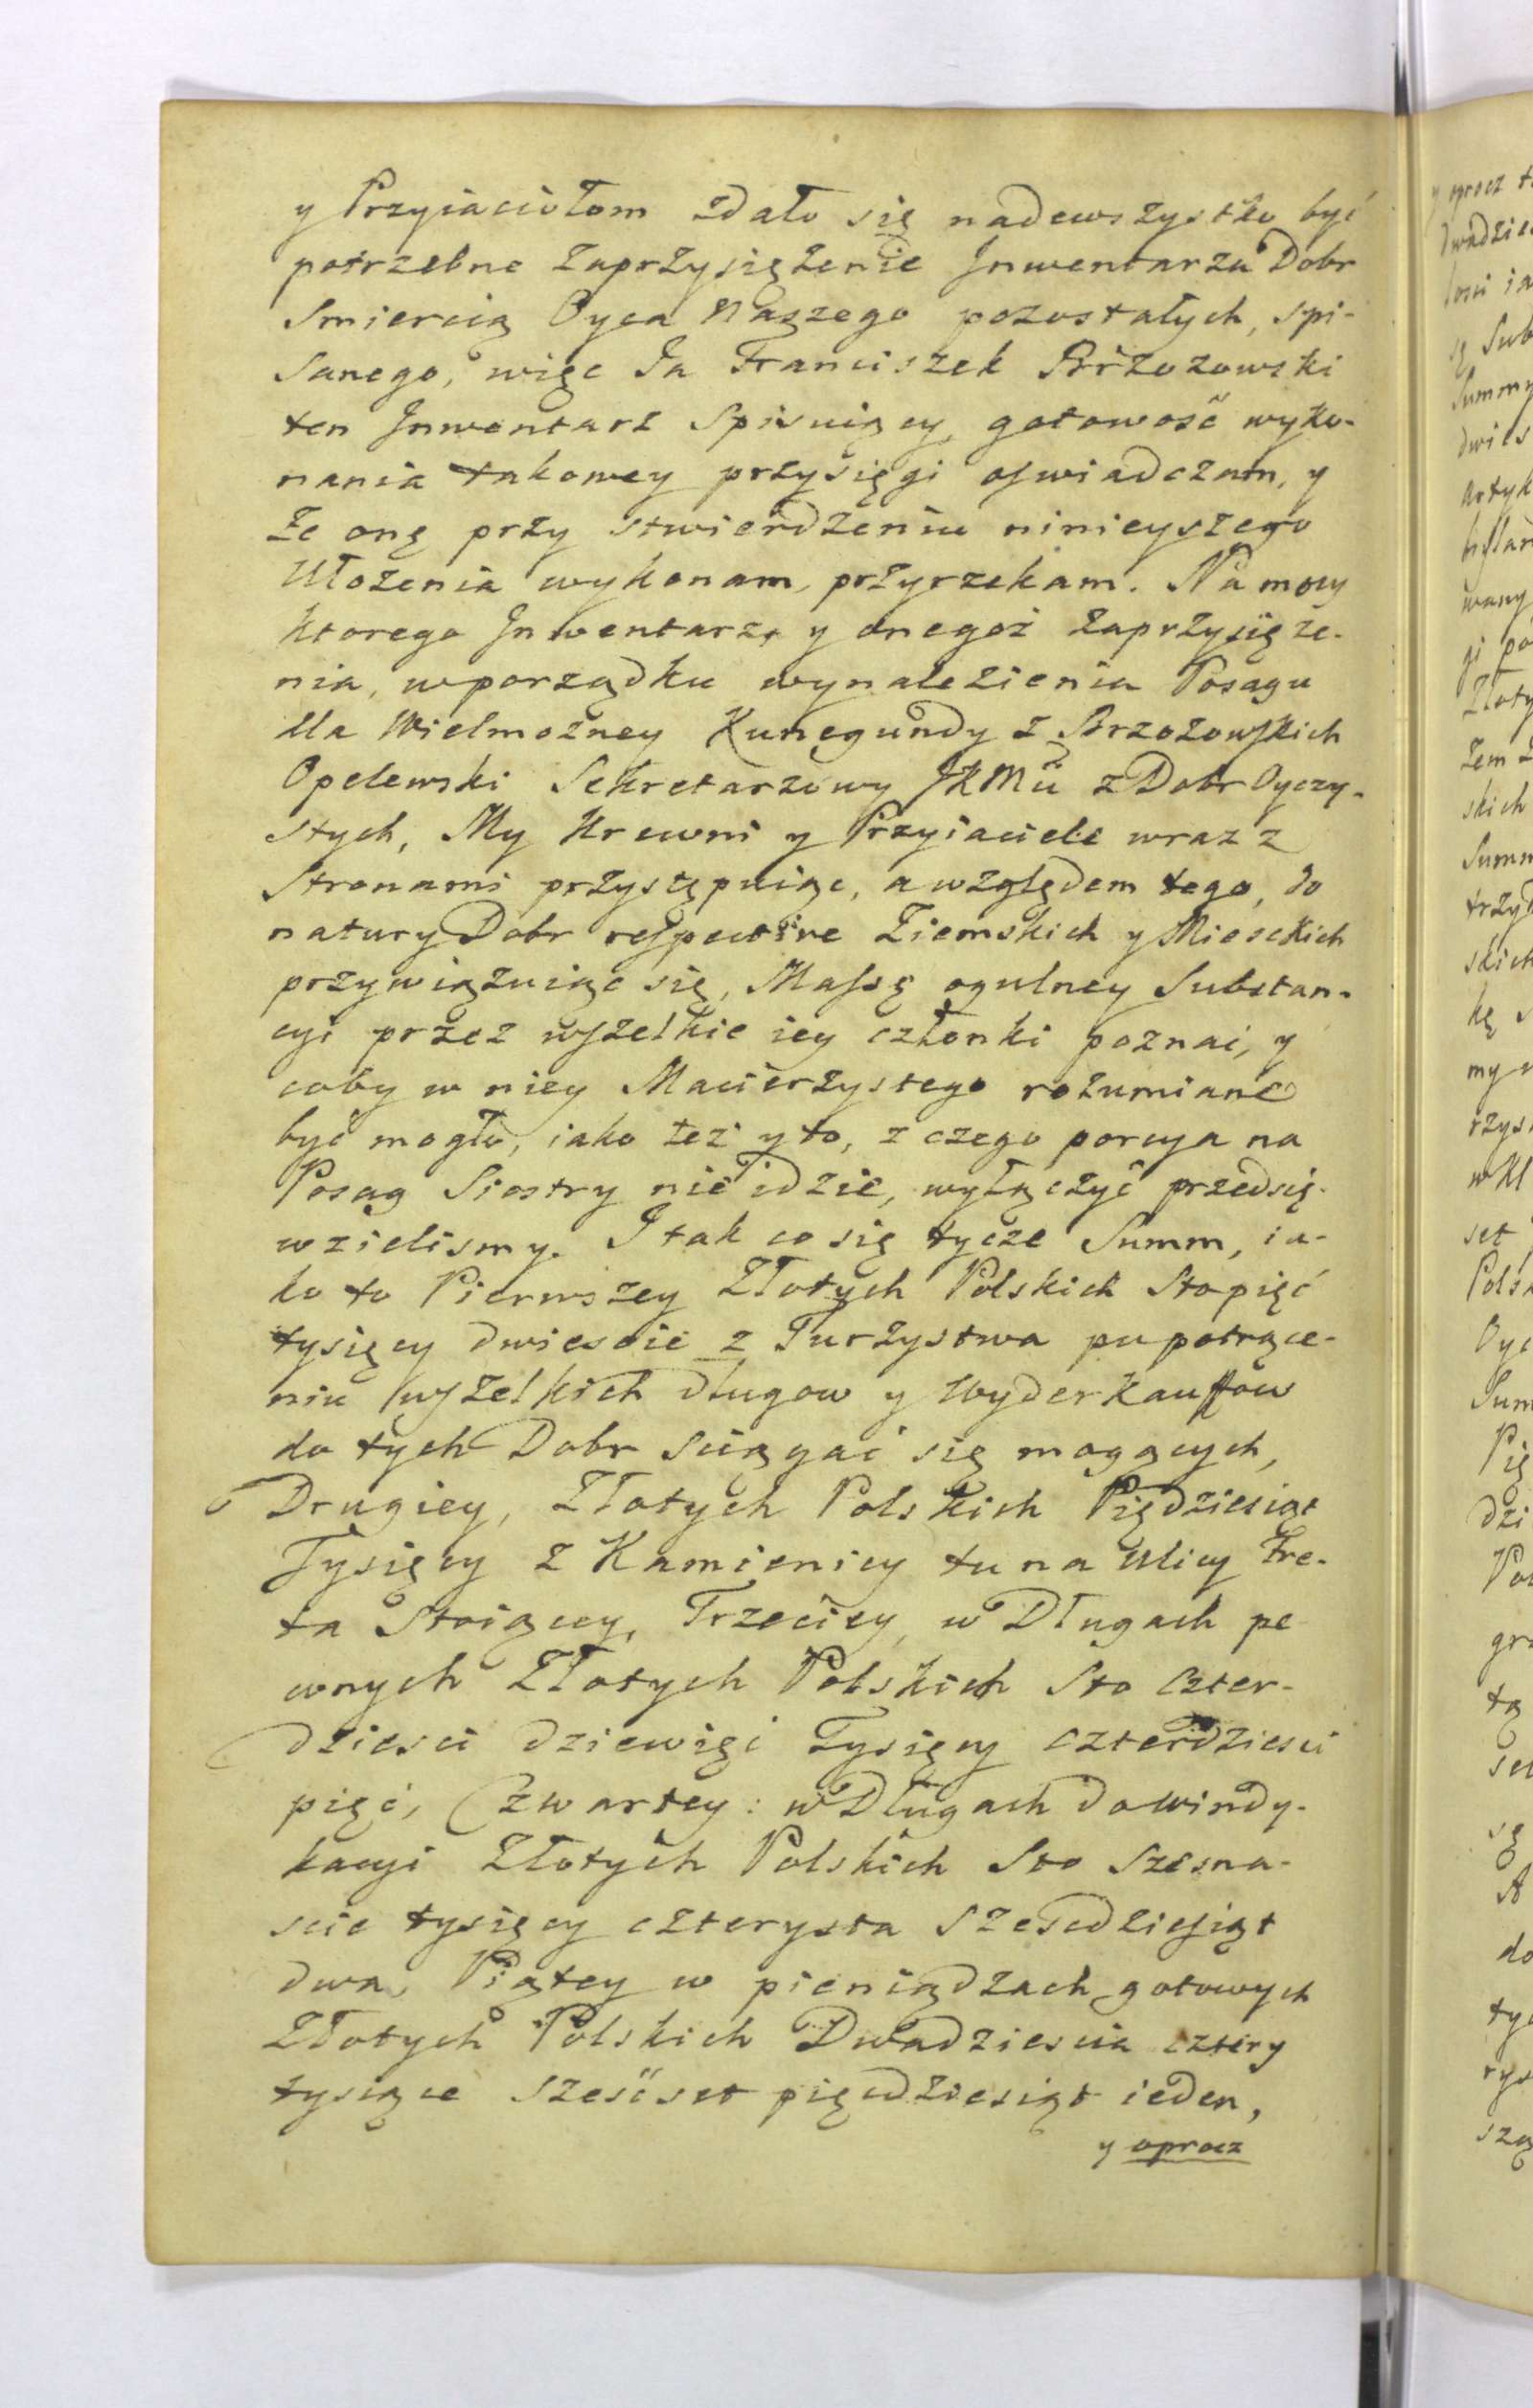 y Przyiaciołom zdało się nadewszystko być
potrzebne zaprzysiężenie Jnwentarza Dobr
Smiercią Oyca Naszego pozostałych, spi-
sanego, więc Ja Franciszek Brzozowski
ten Jnwentarz spisuiący, gotowość wyko-
nania takowey przysięgi oswiadczam, y
że onę przy stwierdzeniu ninieyszego
Ułożenia wykonam, przyrzekam. Na mocy
ktorego Jnwentarza y onegoż zaprzysięże-
nia, w porządku wynalezienia Posagu
dla Wielmożney Kunegundy z Brzozowskich
Opelewski Sekretarzowy JKMci z Dobr Oyczy-
stych, My Krewni y Przyiaciele wraz z
Stronami przystępuiąc, a względem tego, do
natury Dobr respective Ziemskich y Mieskich
przywiązuiąc się, Massę ogulney Substan-
cyi przez wszelkie iey członki poznać, y
coby w niey Macierzystego rozumiane
być mogło, iako też y to, z czego porcya na
Posag Siostry nie idzie, wyłączyć przedsię-
wzielismy. I tak co się tycze Summ, ia-
ko to Pierwszey Złotych Polskich Sto pięć
tysięcy dwiescie z Turzystwa po potrące-
niu wszelkich długow y Wyderkauffow
do tych Dobr sciągać się mogących,
Drugiey, Złotych Polskich Piędziesiąt
Tysięcy z Kamienicy tu na Ulicy Fre-
ta Stoiącey, Trzeciey, w Długach pe
wnych Złotych Polskich Sto czter-
dziesci dziewięć Tysięcy czterdziesci
pięć, Czwartey: w Długach do windy-
kacyi Złotych Polskich Sto szesna-
scie tysięcy czterysta szescdziesiąt
dwa, Piątey w pieniądzach gotowych
Złotych Polskich Dwadziescia cztery
tysiące sześćset pięcdziesiąt ieden,
y oprocz